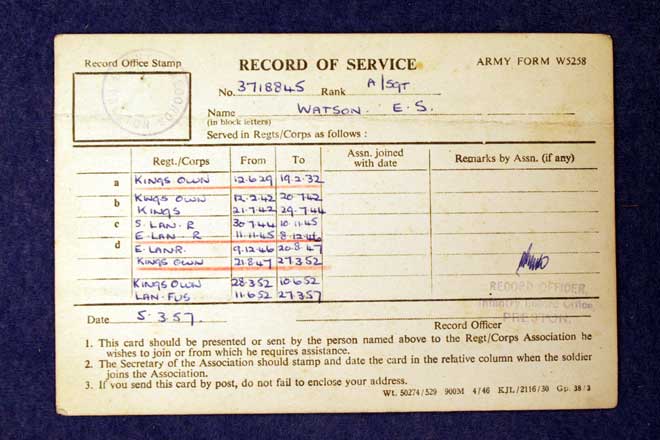 Record Office Stamp
RECORD OF SERVICE
ARMY FORM W5258
No. 3718845 Rank A/SGT
Name WATSON. E. S.
(in block letters)
Served in Regts/Corps as follows :
Regt./Corps From To Assn. joined with date Remarks by Assn. (if any)
a KINGS OWN 12.6.29 19.2.32
b KINGS OWN 12.2.42 20.7.42
KINGS 21.7.42 29.7.44
c S. LAN. R 30.7.44 10.11.45
E. LAN. R 11.11.45 8.12.46
d E. LAN R. 9.12.46 20.8.47
KINGS OWN 21.8.47 27.3.52
KINGS OWN 28.3.52 10.6.52
LAN. FUS 11.6.52 27.3.57
RECORD OFFICER
Infantry Record Office,
PRESTON.
Date 5.3.57.
Record Officer
1. This card should be presented or sent by the person named above to the Regt/Corps Association he
wishes to join or from which he requires assistance.
2. The Secretary of the Association should stamp and date the card in the relative column when the soldier
joins the Association.
3. If you send this card by post, do not fail to enclose your address.
Wt. 50274/529 900M 4/46 KJL/2116/30 Gp. 38/3